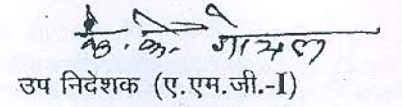 के. के. गोयल
उप निदेशक (ए.एम.जी.-I)